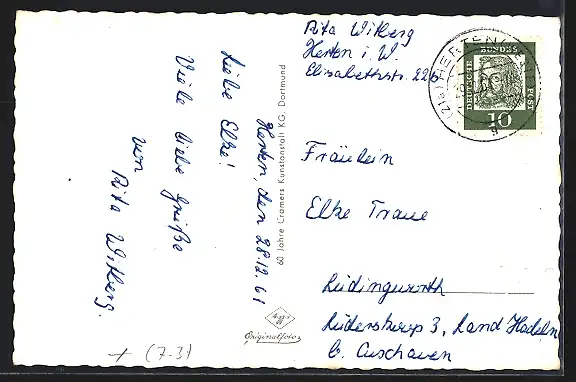 Rita Witberg
Herten i. W.
Elisabethstr. 22b
DEUTSCHE
BUNDES
POST
10
HERTEN
(21a)
g
Herten, den 28.12.61
Liebe Elke!
Viele liebe Grüße
von
Rita Witberg.
60 Jahre Cramers Kunstanstalt KG. Dortmund
Originalfoto
Fräulein
Elke Traue
Lüdingworth
3, Land Hadeln
b. Cuxhaven
+ (7-3)